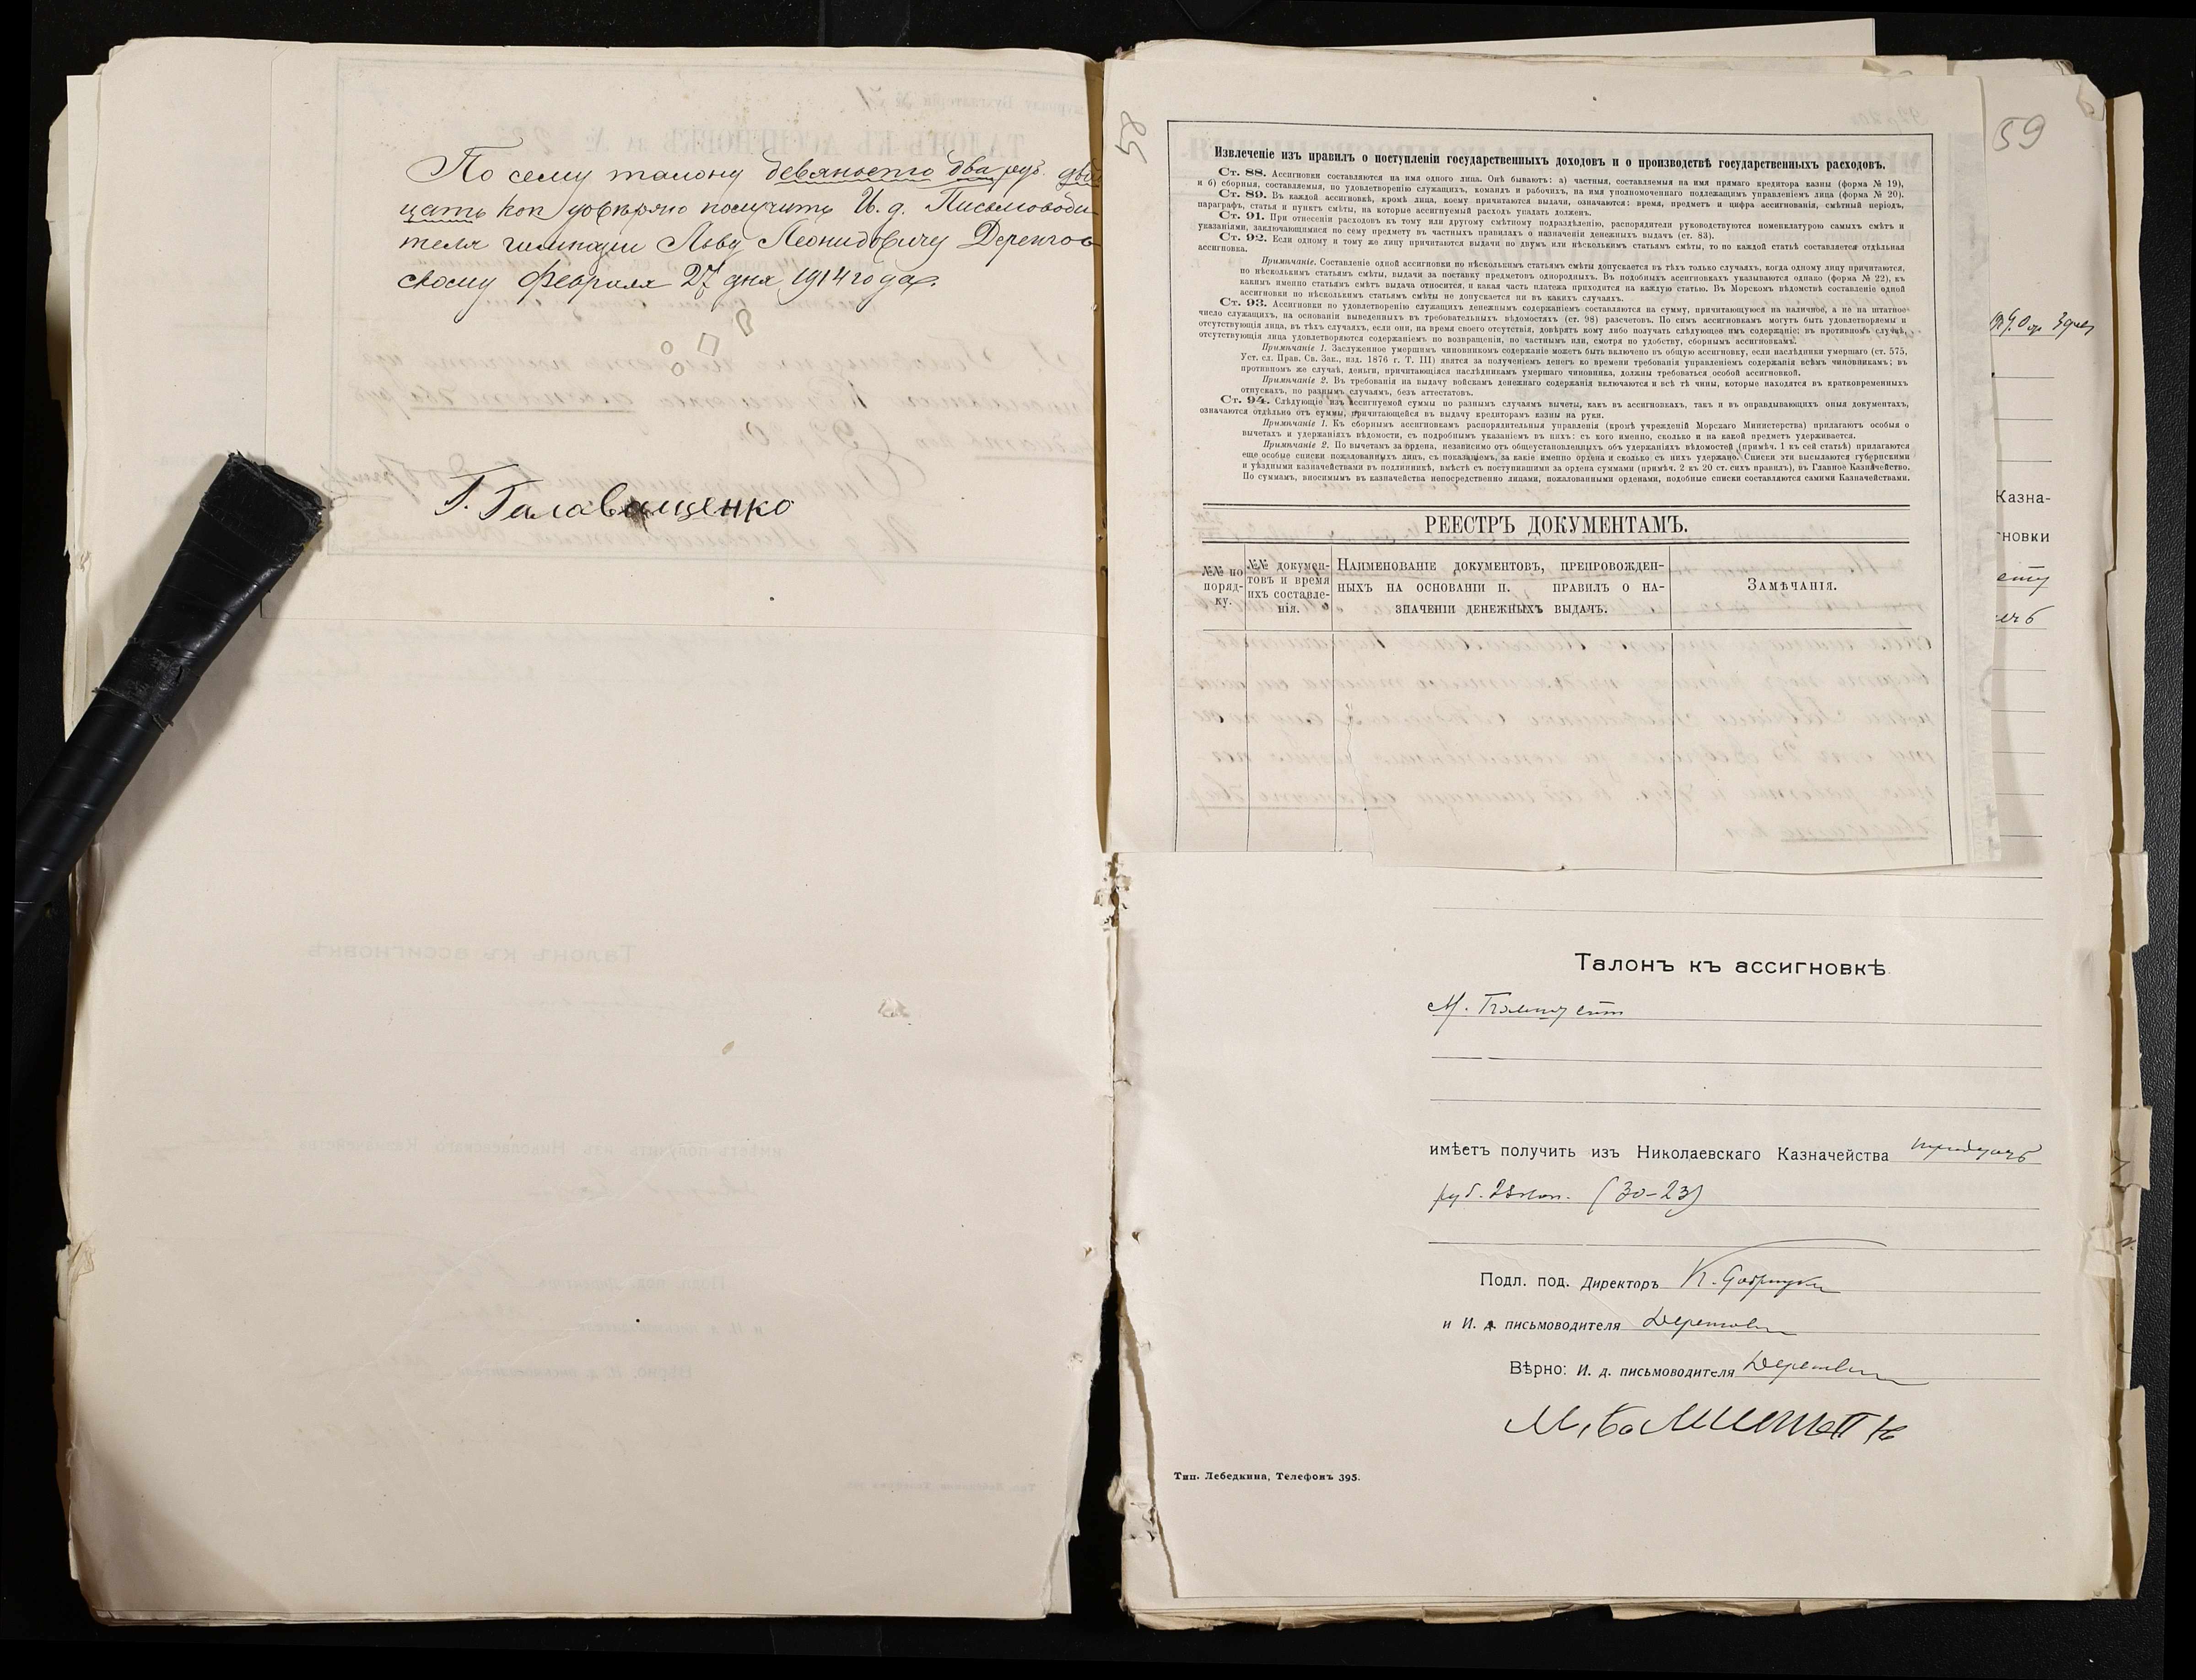 По сему талону девяносто два руб. двад
цать коп довѣряю получить И. д. Письмоводи
теля гимназіи Льву Леонидовичу Деренгов
скому февраля 27 дня 1914 года.
Г. Галаващенко
58
59
Извлеченіе изъ правилъ о поступленіи государственныхъ доходовъ и о производствѣ государственныхъ расходовъ.
Ст. 88. Ассигновки составляются на имя одного лица. Онѣ бываютъ: а) частныя, составляемыя на имя прямаго кредитора казны (форма № 19),
и б) сборныя, составляемыя, по удовлетворенію служащихъ, командъ и рабочихъ, на имя уполномоченнаго подлежащимъ управленіемъ лица (форма № 20).
Ст. 89. Въ каждой ассигновкѣ, кромѣ лица, коему причитаются выдачи, означаются: время, предметъ и цифра ассигнованія, смѣтный періодъ,
параграфъ, статья и пунктъ смѣты, на которые ассигнуемый расходъ упадать долженъ.
Ст. 91. При отнесеніи расходовъ къ тому или другому смѣтному подраздѣленію, распорядители руководствуются номенклатурою самыхъ смѣтъ и
указаніями, заключающимися по сему предмету въ частныхъ правилахъ о назначеніи денежныхъ выдачъ (ст. 83).
Ст. 92. Если одному и тому же лицу причитаются выдачи по двумъ или нѣсколькимъ статьямъ смѣты, то по каждой статьѣ составляется отдѣльная
ассигновка.
Примѣчаніе. Составленіе одной ассигновки по нѣсколькимъ статьямъ смѣты допускается въ тѣхъ только случаяхъ, когда одному лицу причитаются,
по нѣсколькимъ статьямъ смѣты, выдачи за поставку предметовъ однородныхъ. Въ подобныхъ ассигновкахъ указываются однако (форма № 22), къ
какимъ именно статьямъ смѣтъ выдача относится, и какая часть платежа приходится на каждую статью. Въ Морскомъ вѣдомствѣ составленіе одной
ассигновки по нѣсколькимъ статьямъ смѣты не допускается ни въ какихъ случаяхъ.
Ст. 93. Ассигновки по удовлетворенію служащихъ денежнымъ содержаніемъ составляются на сумму, причитающуюся на наличное, а не на штатное
число служащихъ, на основаніи выведенныхъ въ требовательныхъ вѣдомостяхъ (ст. 98) разсчетовъ. По симъ ассигновкамъ могутъ быть удовлетворяемы и
отсутствующія лица, въ тѣхъ случаяхъ, если они, на время своего отсутствія, довѣрятъ кому либо получать слѣдующее имъ содержаніе; въ противномъ случаѣ,
отсутствующія лица удовлетворяются содержаніемъ по возвращеніи, по частнымъ или, смотря по удобству, сборнымъ ассигновкамъ.
Примѣчаніе 1. Заслуженное умершимъ чиновникомъ содержаніе можетъ быть включено въ общую ассигновку, если наслѣдники умершаго (ст. 575,
Уст. сл. Прав. Св. Зак., изд. 1876 г. Т. III) явятся за полученіемъ денегъ ко времени требованія управленіемъ содержанія всѣмъ чиновникамъ; въ
противномъ же случаѣ, деньги, причитающіяся наслѣдникамъ умершаго чиновника, должны требоваться особой ассигновкой.
Примѣчаніе 2. Въ требованія на выдачу войскамъ денежнаго содержанія включаются и всѣ тѣ чины, которые находятся въ кратковременныхъ
отпускахъ, по разнымъ случаямъ, безъ аттестатовъ.
Ст. 94. Слѣдующіе изъ ассигнуемой суммы по разнымъ случаямъ вычеты, какъ въ ассигновкахъ, такъ и въ оправдывающихъ оныя документахъ,
означаются отдѣльно отъ суммы, причитающейся въ выдачу кредиторамъ казны на руки.
Примѣчаніе 1. Къ сборнымъ ассигновкамъ распорядительныя управленія (кромѣ учрежденій Морскаго Министерства) прилагаютъ особыя о
вычетахъ и удержаніяхъ вѣдомости, съ подробнымъ указаніемъ въ нихъ: съ кого именно, сколько и на какой предметъ удерживается.
Примѣчаніе 2. По вычетамъ за ордена, независимо отъ общеустановленныхъ объ удержаніяхъ вѣдомостей (примѣч. 1 къ сей статьѣ) прилагаются
еще особые списки пожалованныхъ лицъ, съ показаніемъ, за какіе именно ордена и сколько съ нихъ удержано. Списки эти высылаются губернскими
и уѣздными казначействами въ подлинникѣ, вмѣстѣ съ поступившими за ордена суммами (примѣч. 2 къ 20 ст. сихъ правилъ), въ Главное Казначейство.
По суммамъ, вносимымъ въ казначейства непосредственно лицами, пожалованными орденами, подобные списки составляются самими Казначействами.
РЕЕСТРЪ ДОКУМЕНТАМЪ.
№№ по
поряд-
ку.
№№ докумен-
товъ и время
ихъ составле-
нія.
Наименованіе документовъ, препровожден-
ныхъ на основаніи п. правилъ о на-
значеніи денежныхъ выдачъ.
Замѣчанія.
Казна-
новки
Талонъ къ ассигновкѣ
М.
имѣетъ получить изъ Николаевскаго Казначейства тридцать
руб. 23 коп. (30-23)
Подл. под. Директоръ К.
и И. д. письмоводителя
Вѣрно: И. д. письмоводителя
Тип. Лебедкина, Телефонъ 395.